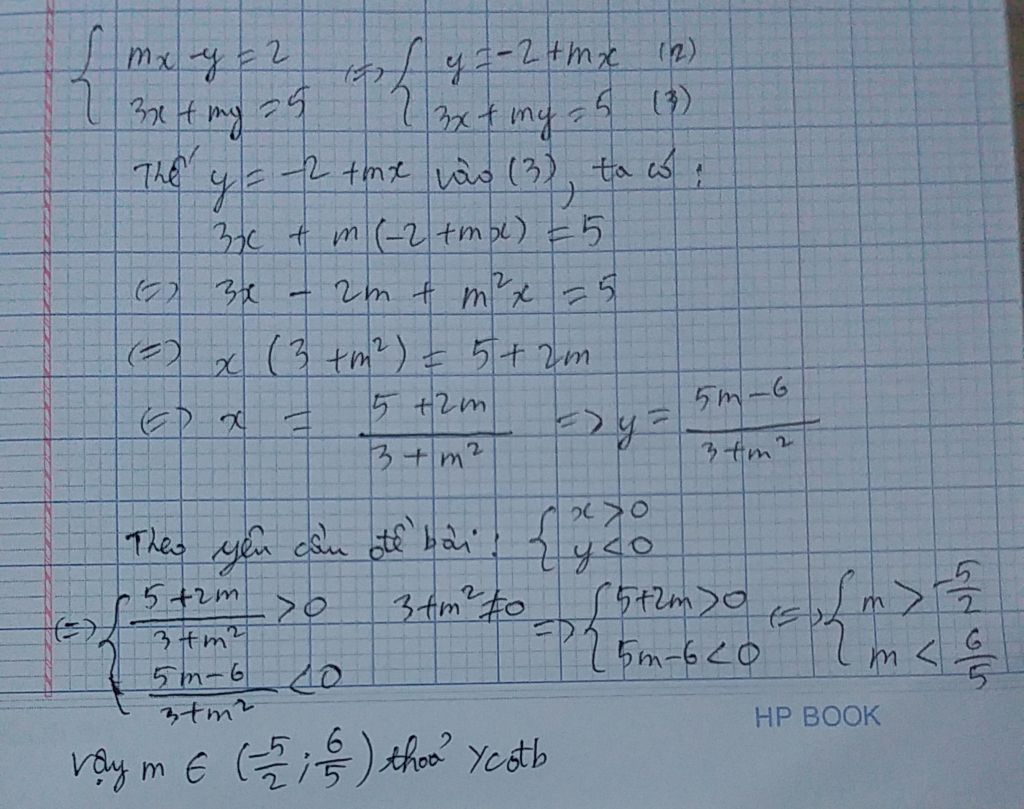 { mx - y = 2 <=> { y = -2 + mx (2)
{ 3x + my = 5 { 3x + my = 5 (3)
Thế y = -2 + mx vào (3), ta có :
3x + m(-2 + mx) = 5
<=> 3x - 2m + m²x = 5
<=> x (3 + m²) = 5 + 2m
<=> x = (5 + 2m)/(3 + m²) => y = (5m - 6)/(3 + m²)
Theo yêu cầu đề bài : { x > 0
{ y < 0
<=> { (5 + 2m)/(3 + m²) > 0 3 + m² ≠ 0 => { 5 + 2m > 0 <=> { m > -5/2
{ (5m - 6)/(3 + m²) < 0 { 5m - 6 < 0 { m < 6/5
HP BOOK
Vậy m ∈ (-5/2 ; 6/5) thoả ycđb